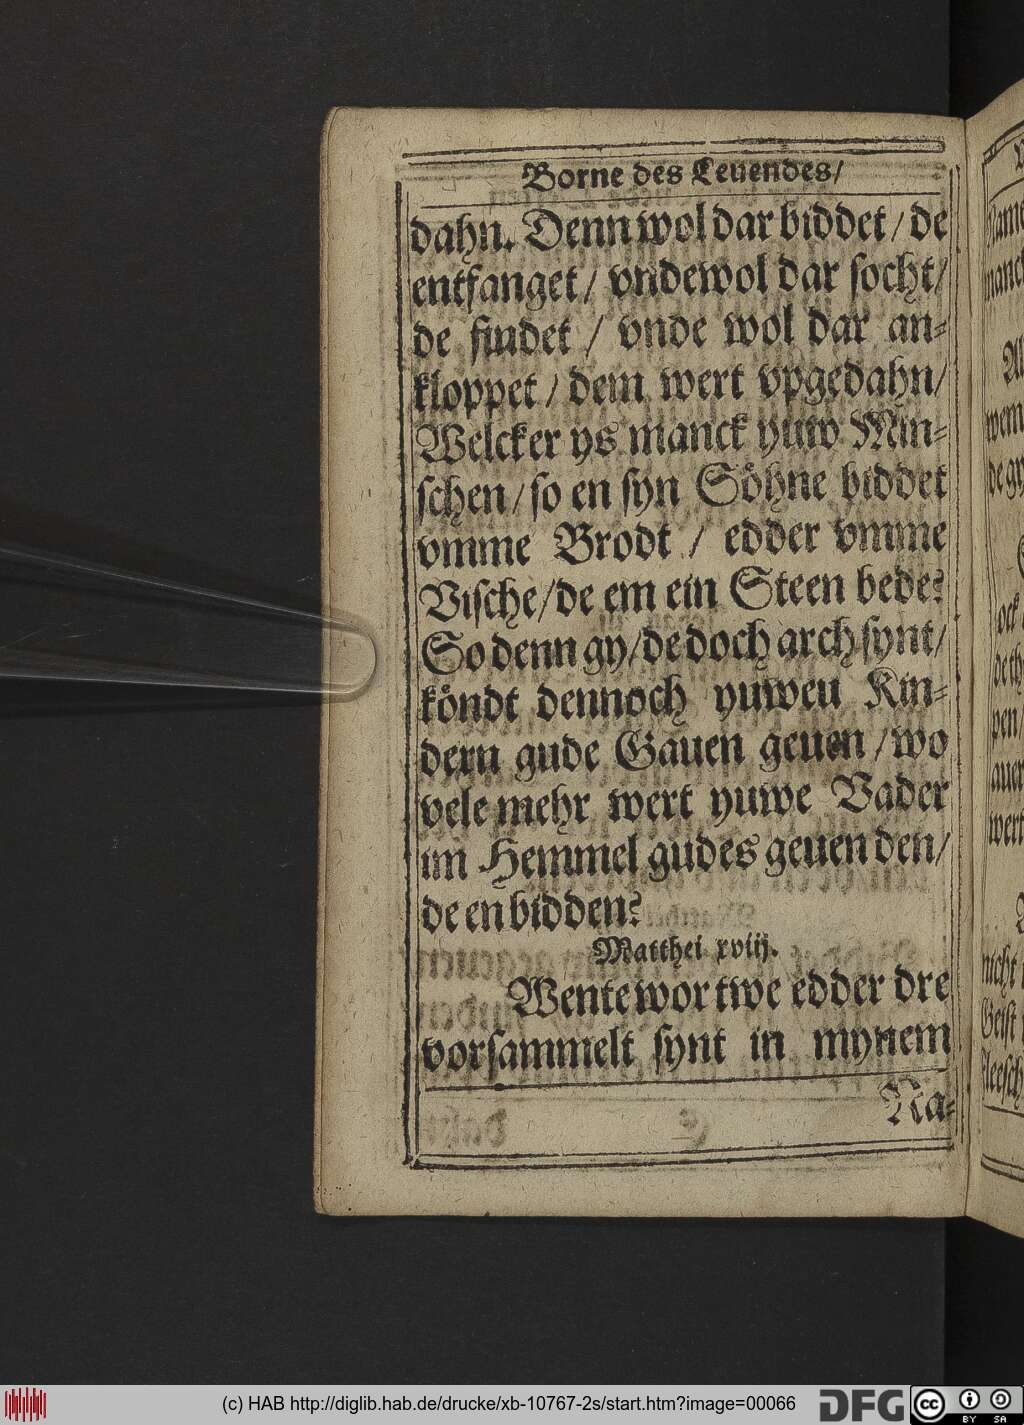 Borne des Leuendes/
dahn. Denn wol dar biddet / de
entfanget / vnde wol dar socht/
de findet / vnde wol dar an-
kloppet / dem wert vpgedahn/
Welcker ys manck yuw Min-
schen / so en syn Söhne biddet
vmme Brodt / edder vmme
Vische/de em ein Steen bede?
So denn gy/de doch arch synt/
köndt dennoch yuweu Kin-
dern gude Gauen geuen / wo
vele mehr wert yuwe Vader
im Hemmel gudes geuen den/
de en bidden?
Matthei xviij.
Wente wor twe edder dre
vorsammelt synt in mynem
Na-
(c) HAB http://diglib.hab.de/drucke/xb-10767-2s/start.htm?image=00066
DFG
cc BY SA